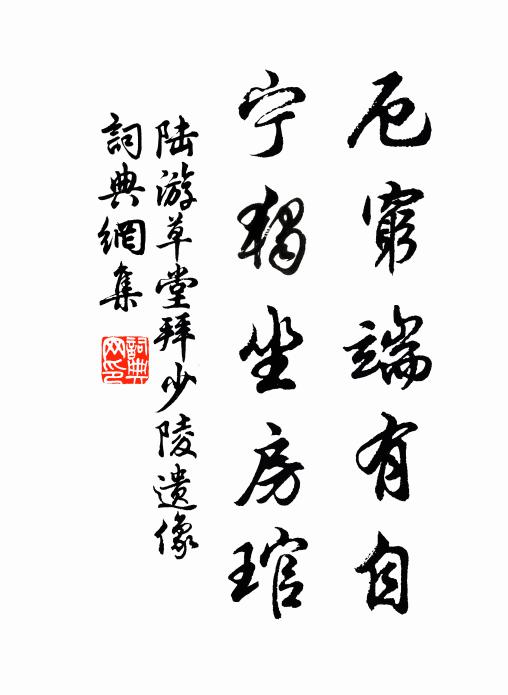 厄窮端有自
宁獨坐房琯
陸游草堂拜少陵遺像
詞典網集
詞典網印